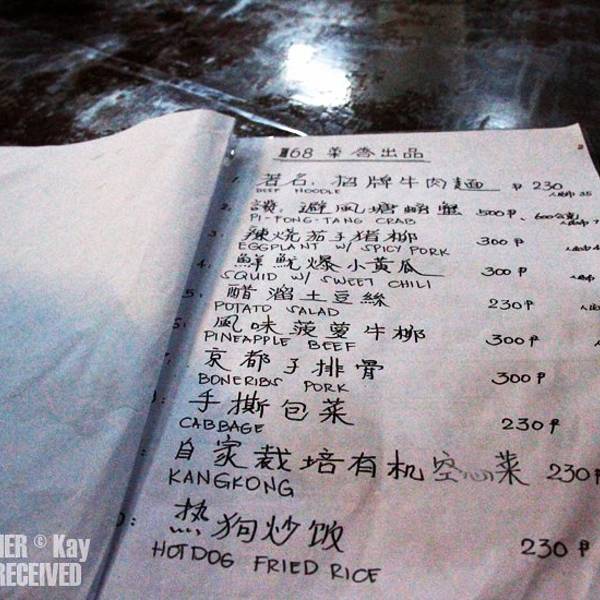 168 荣誉出品
1. 著名:招牌牛肉麵 ₱ 230
BEEF NOODLE
2. 讚:避風塘螃蟹 500₱、600
PI-FONG-TANG CRAB
3. 辣烧茄子猪柳 300₱
EGGPLANT W/ SPICY PORK
4. 鮮魷爆小黄瓜 300₱
SQUID W/ SWEET CHILI
5. 醋溜土豆絲 230₱
POTATO SALAD
6. 風味菠萝牛柳 300₱
PINEAPPLE BEEF
京都子排骨 300₱
BONERIBS PORK
手撕包菜 230₱
CABBAGE
自家栽培有机空心菜 230₱
KANGKONG
热狗炒饭 230₱
HOTDOG FRIED RICE
© Kay
RECEIVED